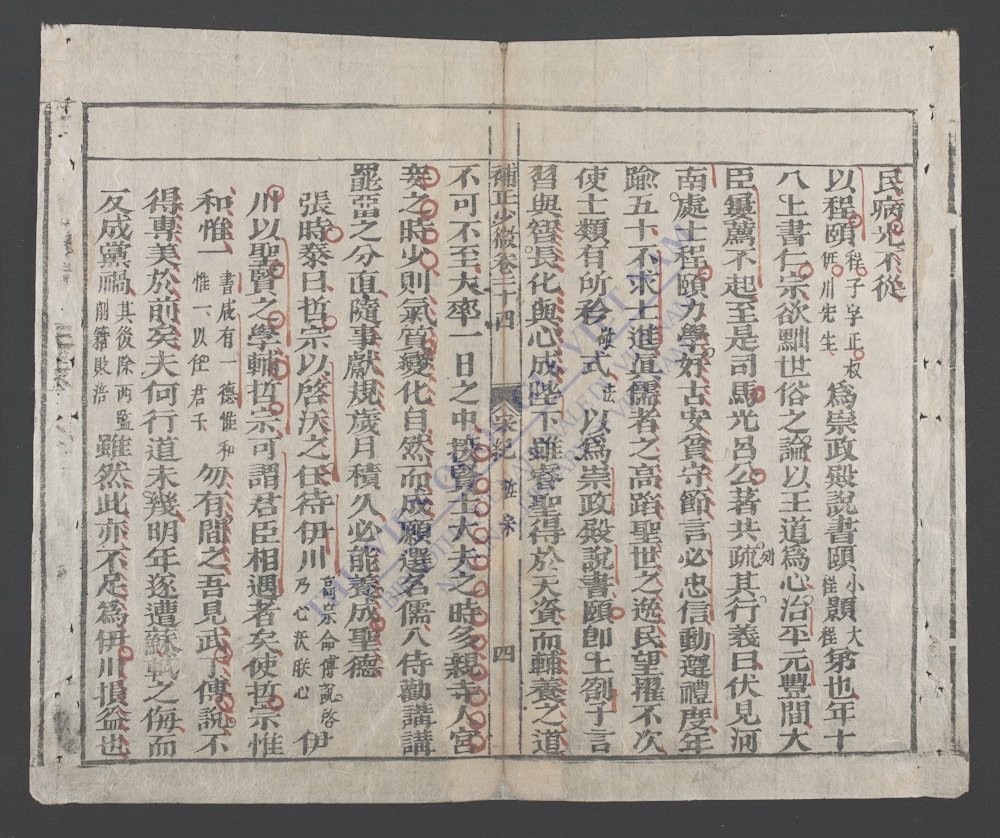 民病光不從
以程頤程子字正叔伊川先生爲崇政殿說書頤小程顥大程弟也年十
八上書仁宗欲黜世俗之論以王道爲心治平元豐間大
臣屢薦不起至是司馬光呂公著共疏列其行義曰伏見河
南處士程頤力學好古安貧守節言必忠信動遵禮度年
踰五十不求仕進眞儒者之高蹈聖世之逸民望擢不次
使士類有所矜敬式法以爲崇政殿說書頤卽上劄子言
習與智長化與心成陛下雖睿聖得於天資而輔養之道
補正少微卷二十四 宋紀 哲宗 四
不可不至大率一日之中接賢士大夫之時多親寺人宮
妾之時少則氣質變化自然而成願選名儒入侍勸講講
罷畱之分直隨事獻規歲月積久必能養成聖德
張時泰曰哲宗以啓沃之任待伊川高宗命傅說啓乃心沃朕心伊
川以聖賢之學輔哲宗可謂君臣相遇者矣使哲宗惟
和惟一書咸有一德惟和惟一以任君子勿有間之吾見武丁傅說不
得專美於前矣夫何行道未幾明年遂遭蘇軾之侮而
反成黨禍其後除西監削籍敗涪雖然此亦不足爲伊川損益也
THƯ VIỆN QUỐC GIA VIỆT NAM
BIBLIOTHEQUE NATIONALE DU VIETNAM
NATIONAL LIBRARY OF VIETNAM